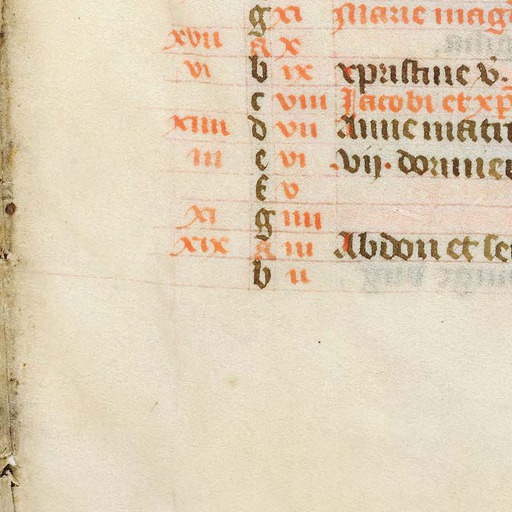 g xi Marie mag
xvii a x
vi b ix xpristine v̄.
c viii Jacobi et xp̄
xiiii d vii Anne matr
iii e vi .vij. dormie
f v
xi g iiii
xix a iii Abdon et se
b ii